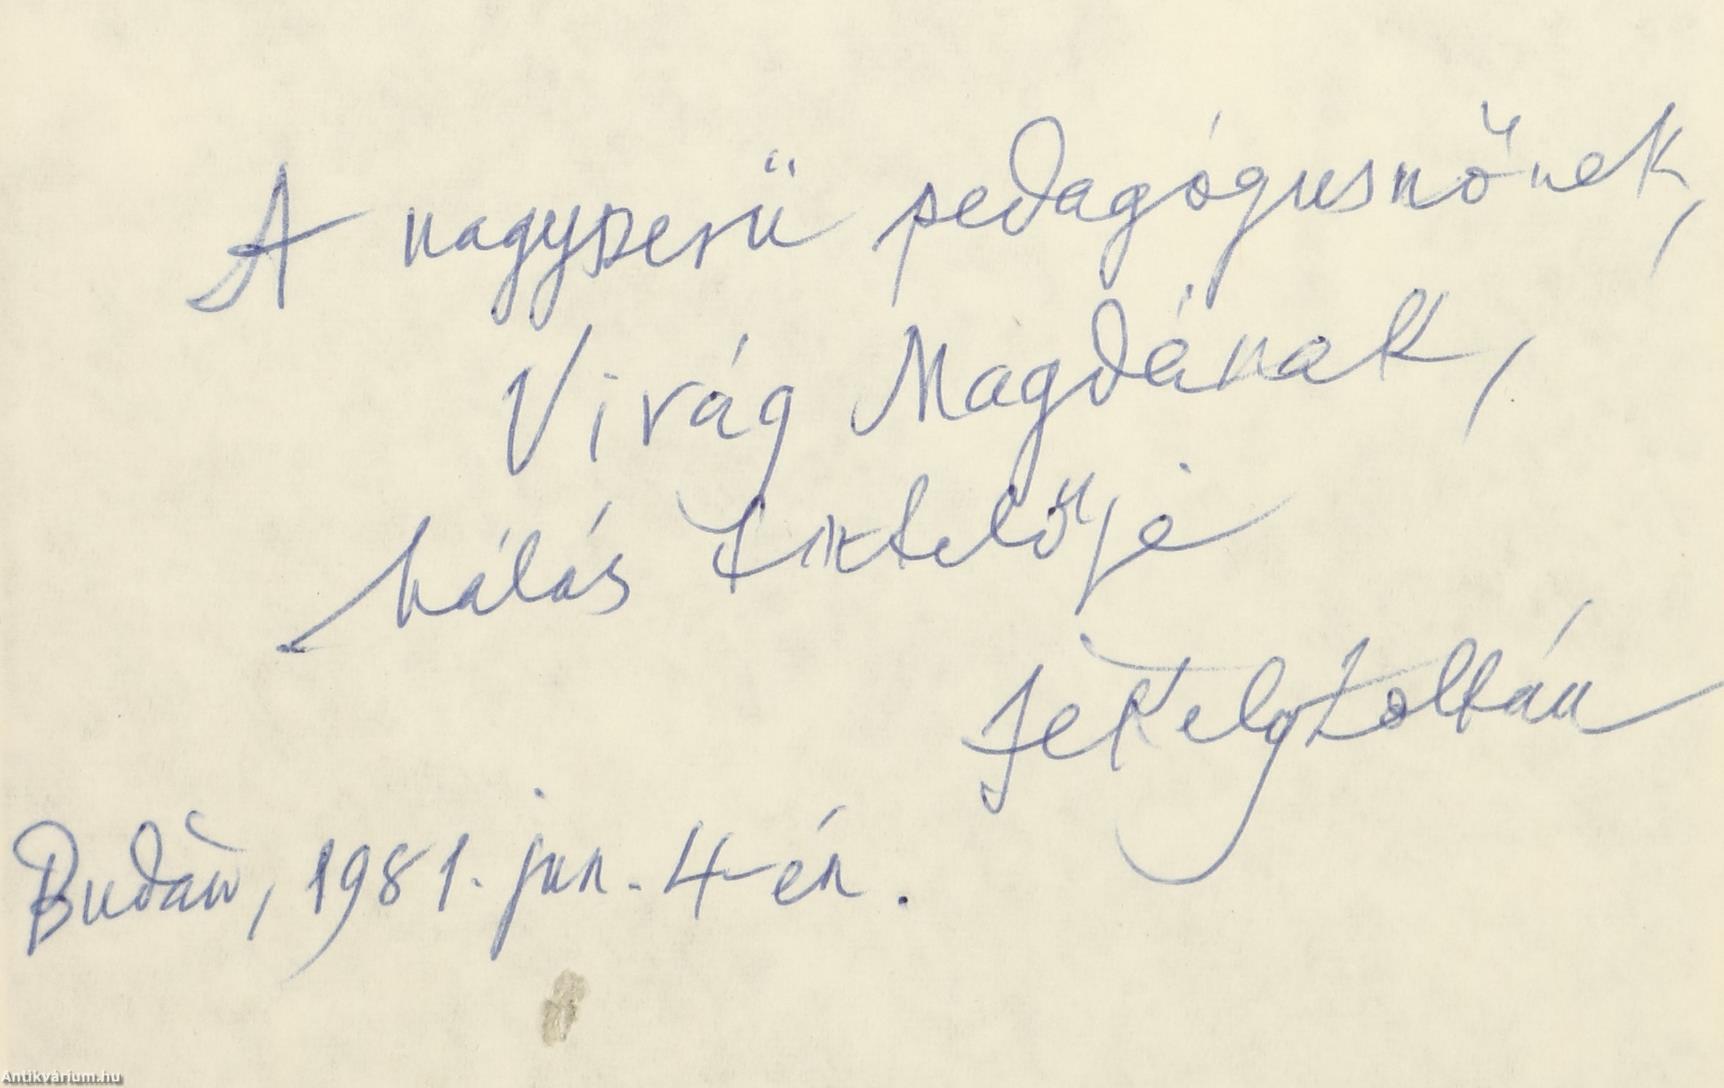 A nagyszerű pedagógusnőnek,
Virág Magdának,
hálás tisztelője
Jékely Zoltán
Budán, 1981. jun. 4-én.
Antikvárium.hu